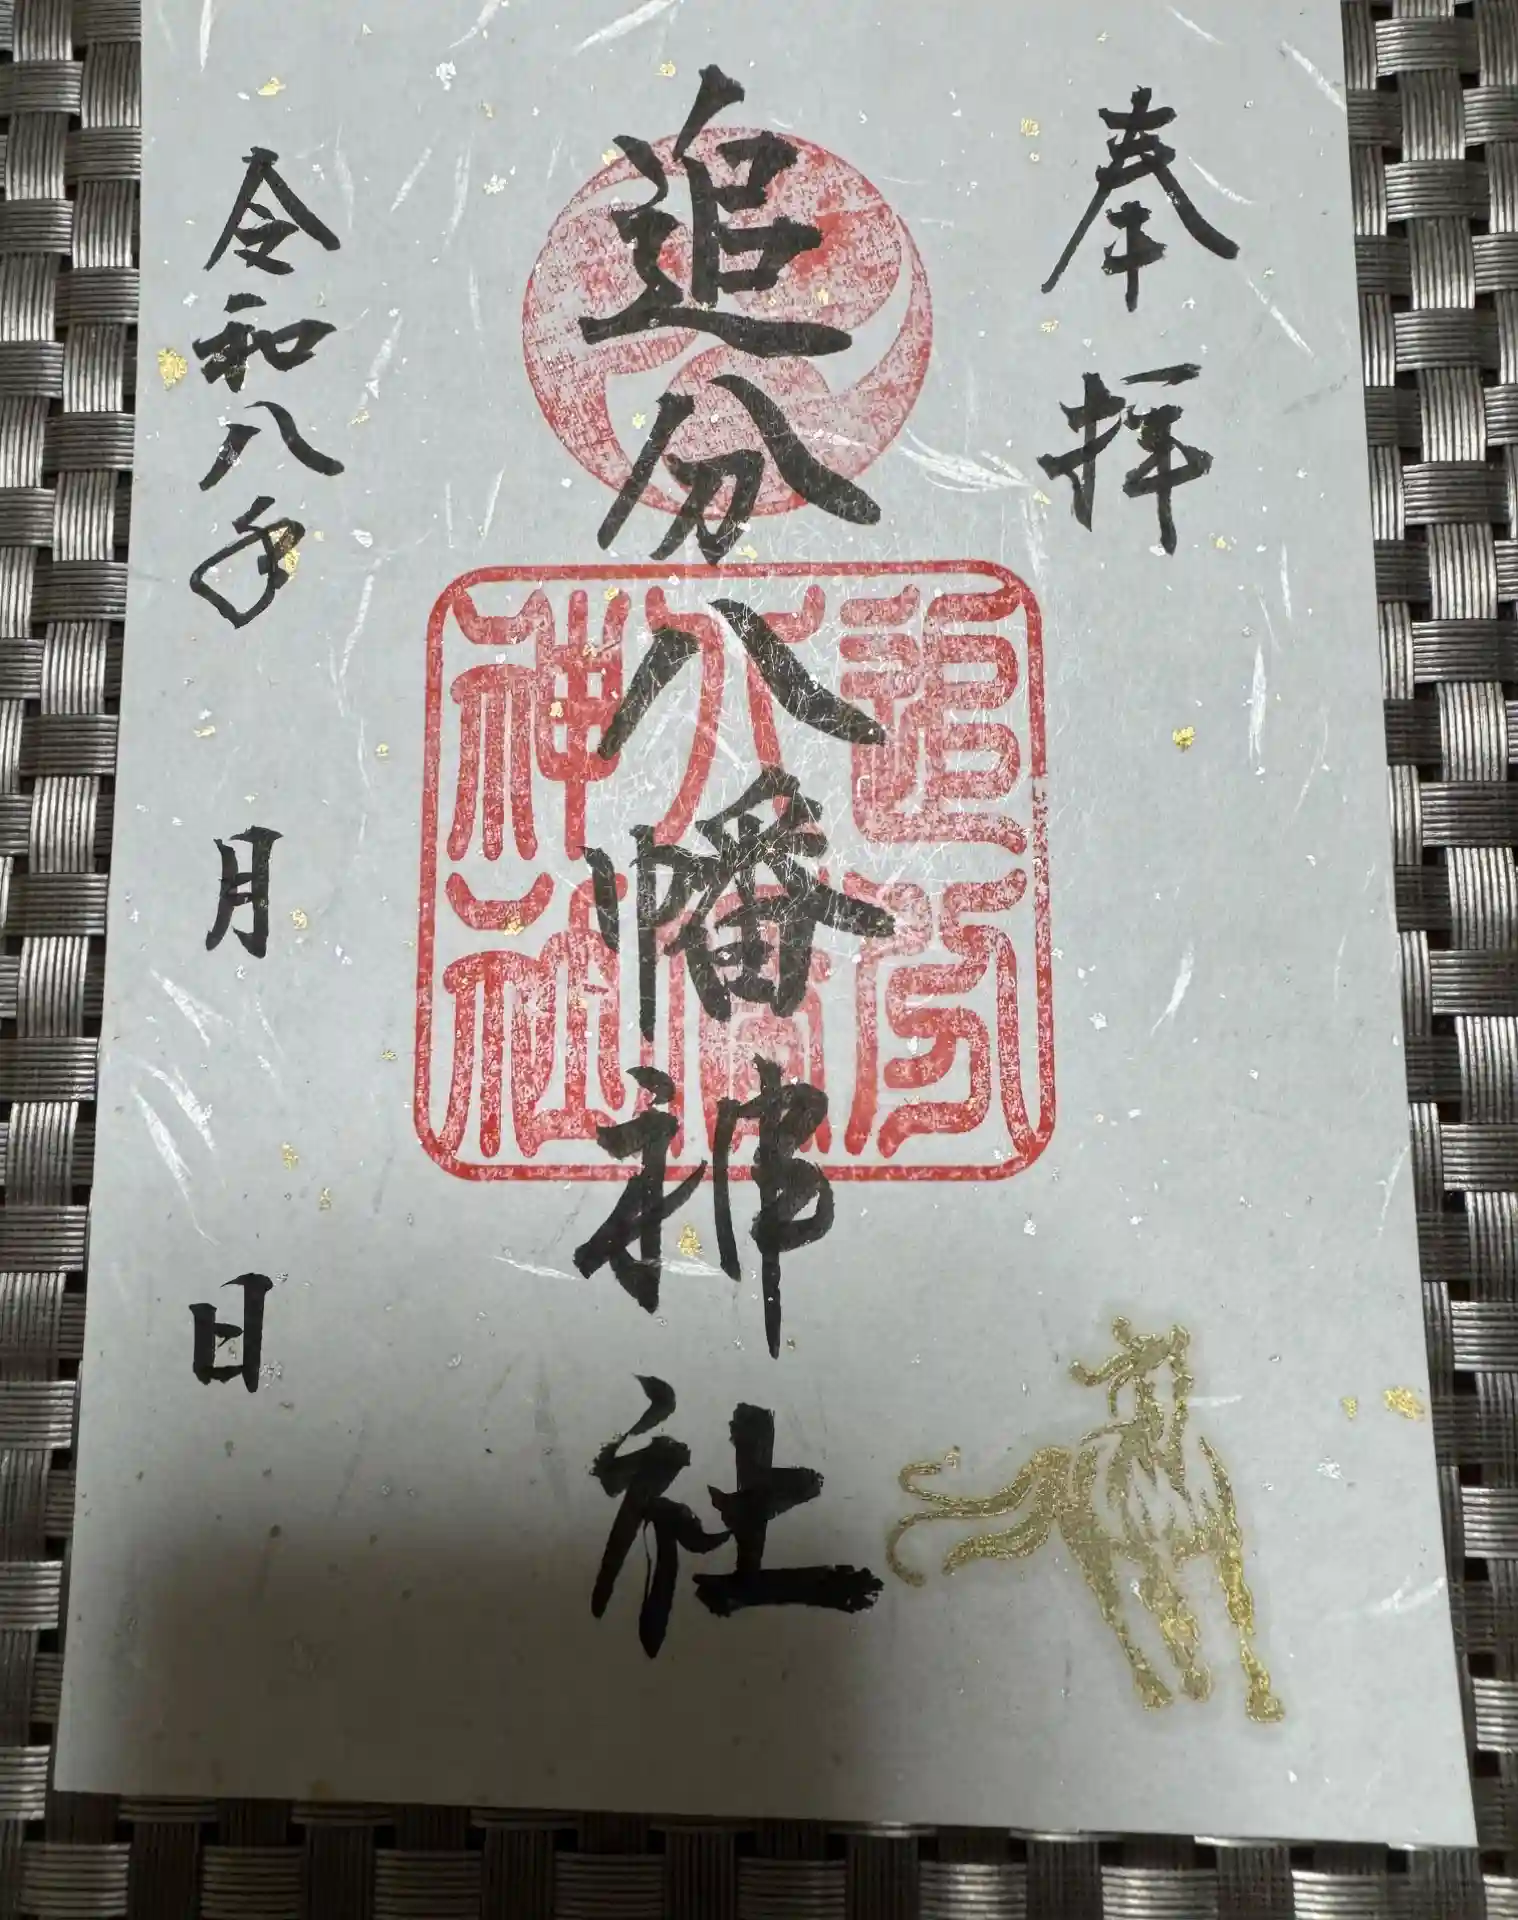 奉拝
追分八幡神社
追分
八幡
神社
令和八年 月 日